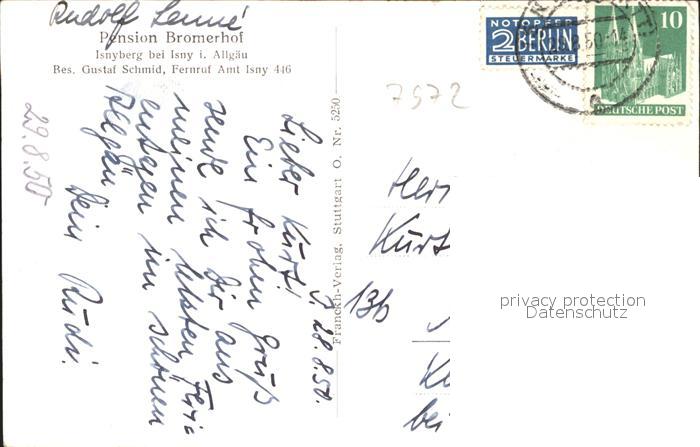 Rudolf Lenné
Pension Bromerhof
Isnyberg bei Isny i. Allgäu
Bes. Gustaf Schmid, Fernruf Amt Isny 446
NOTOPFER
2 BERLIN
STEUERMARKE
10
DEUTSCHE POST
7972
29.8.50
28.8.50.
Lieber Kurt!
Ein frohen Gruß
sende ich Dir aus
meinen letzten Feri-
entagen im schönen
Allgäu
Dein Rudi.
Franckh-Verlag, Stuttgart O. Nr. 5250
Her
Kurt
13b
bei
privacy protection
Datenschutz